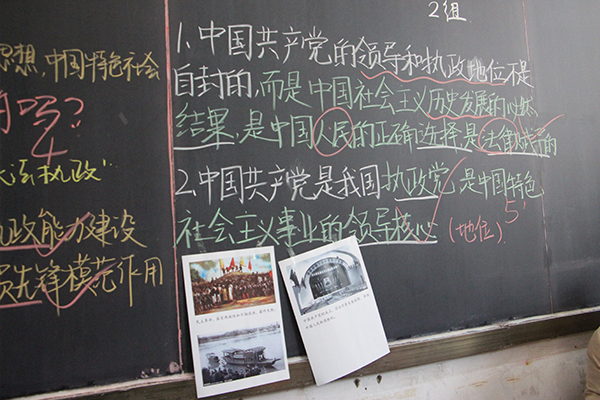 思想,中国特色社会
吗?
4
执政”
执政能力建设
员先锋模范作用
2组
1.中国共产党的领导和执政地位不是
自封的,而是中国社会主义历史发展的必然
结果,是中国人民的正确选择是法律赋予的
2.中国共产党是我国执政党,是中国特色
社会主义事业的领导核心 (地位).
5